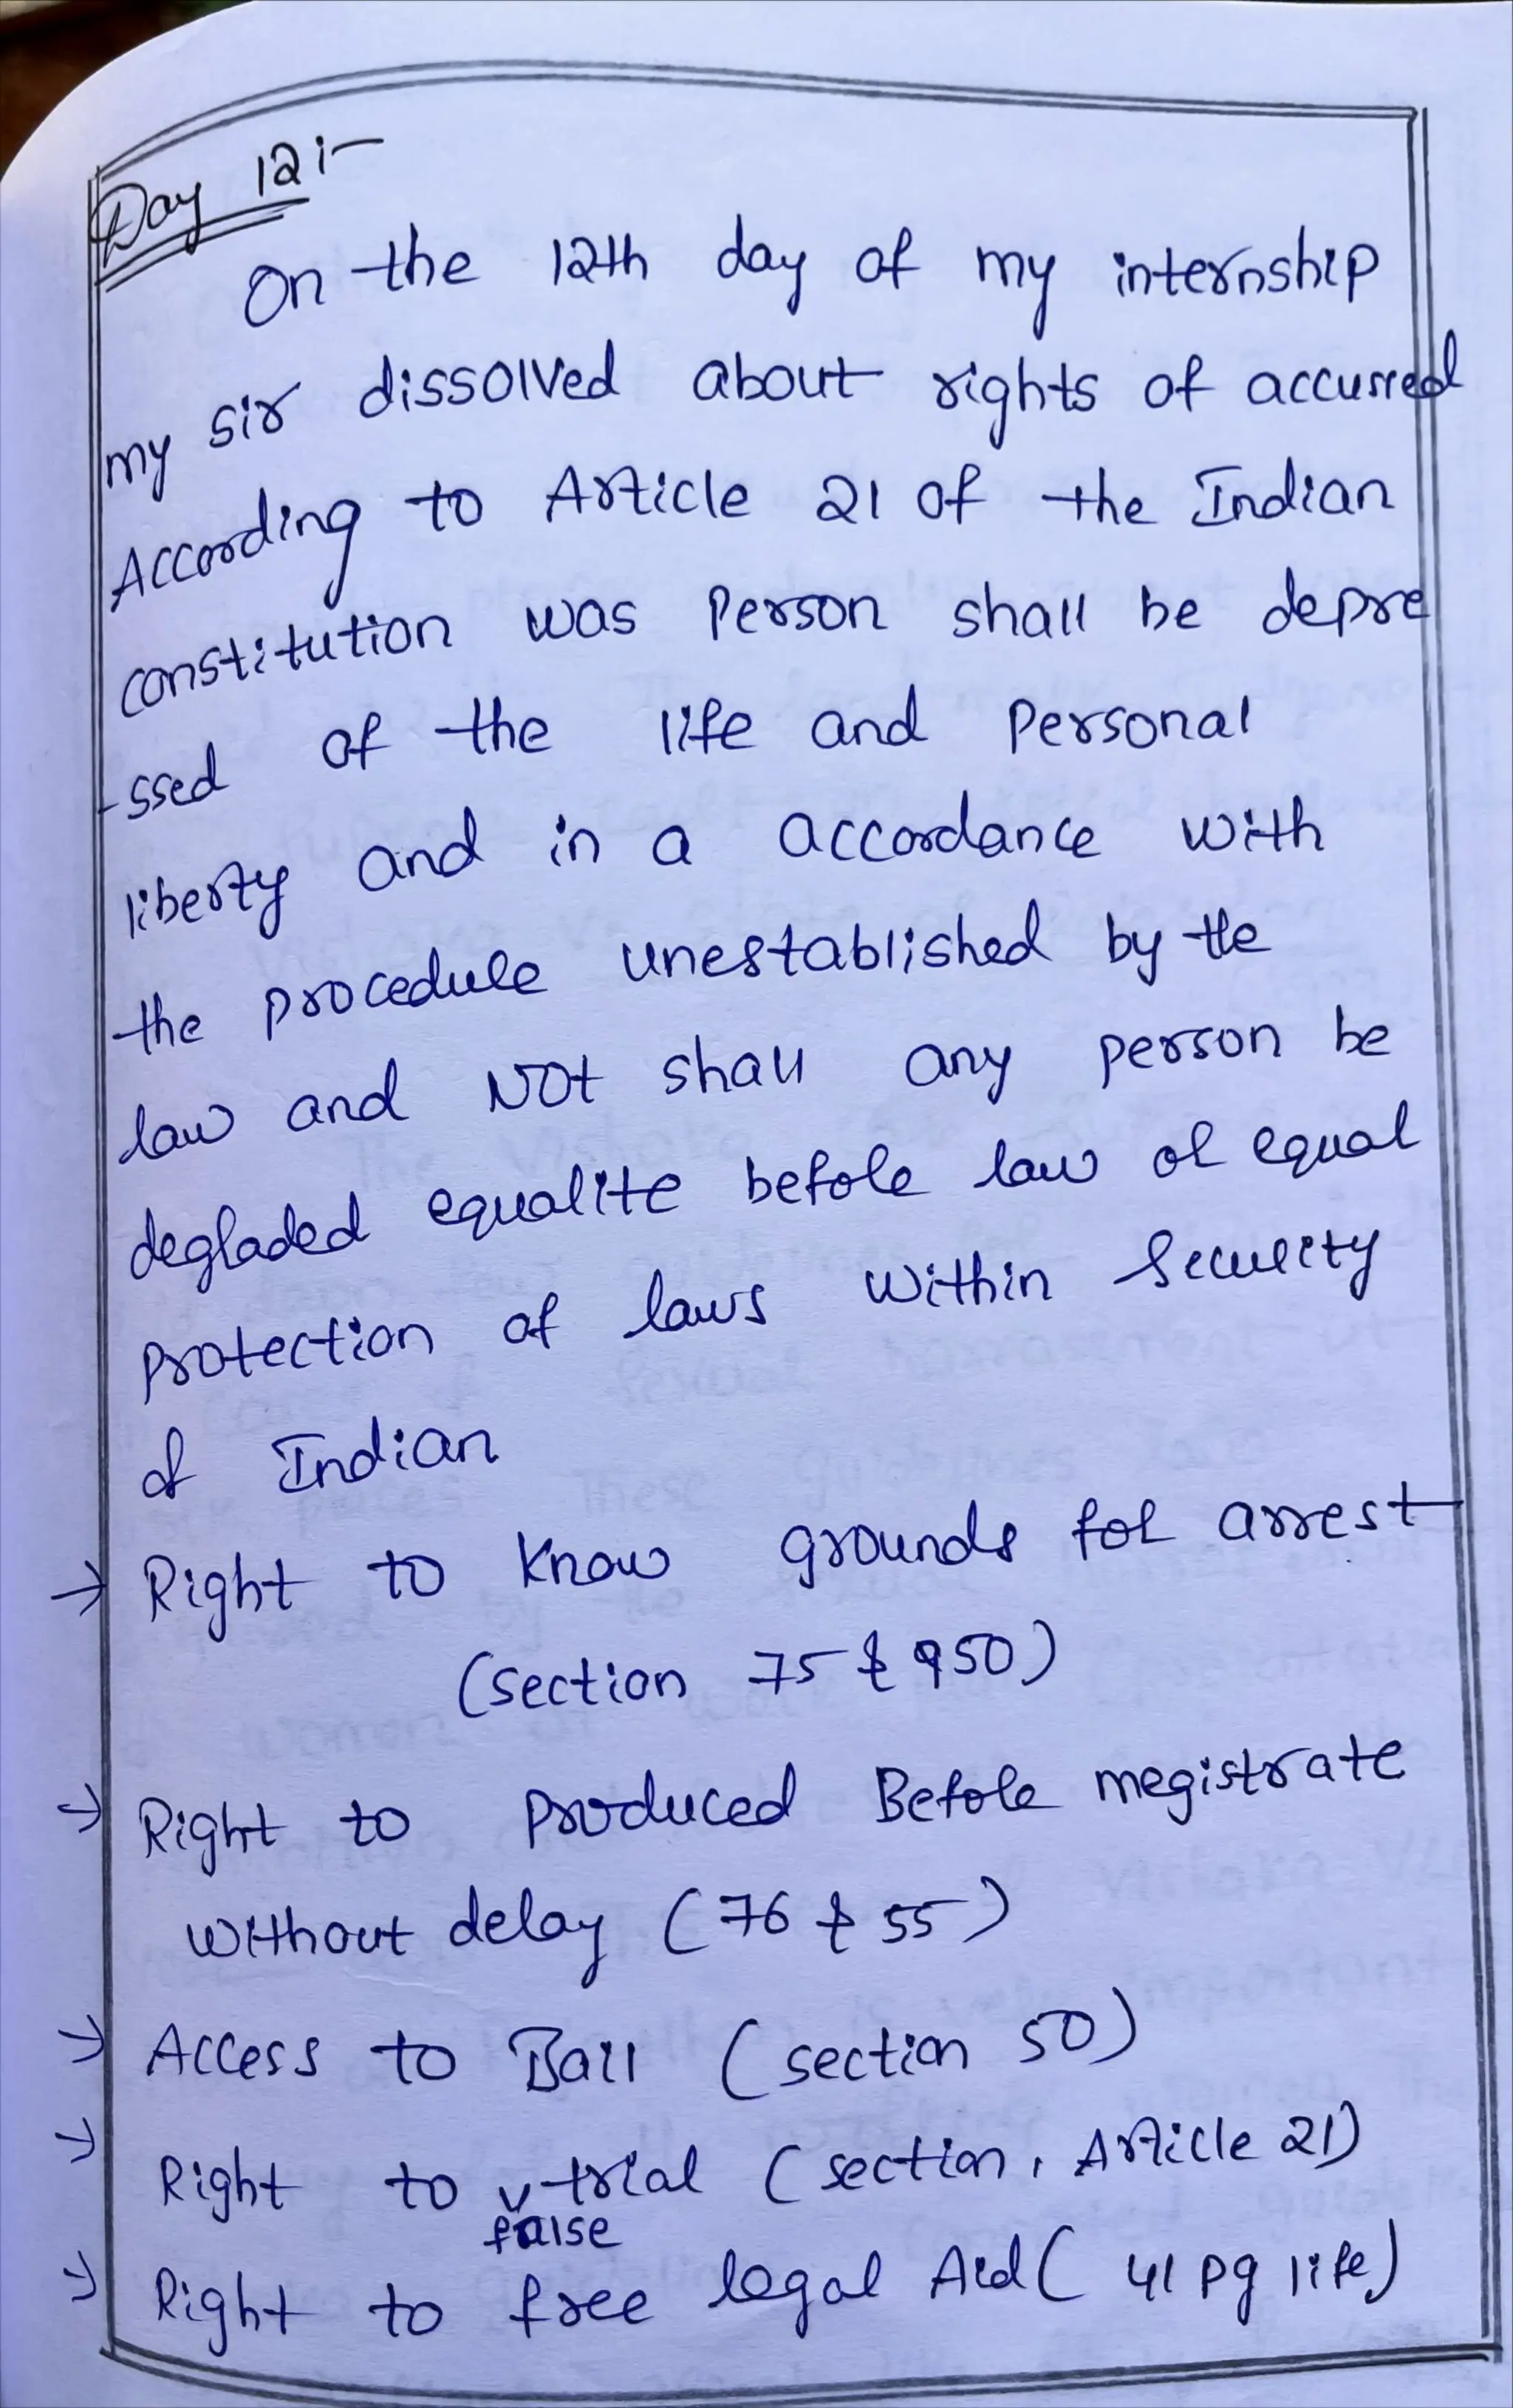 Day 12:-
On the 12th day of my internship
my sir dissolved about rights of accursed
According to Article 21 of the Indian
constitution was Person shall be depre
-ssed of the life and Personal
liberty and in a accordance with
the procedure unestablished by the
law and Not shall any person be
degraded equalite before law or equal
protection of laws within Security
of Indian
→ Right to know grounds for arrest
(section 75 & 950)
→ Right to produced Before megistrate
without delay (76 & 55)
→ Access to Bail (section 50)
→ Right to trial (section, Article 21)
false
→ Right to free legal Aid ( 41 pg life)